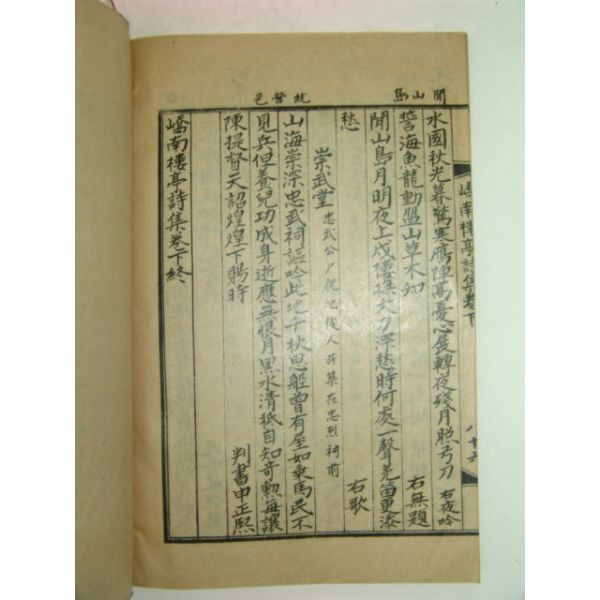 閒山島
統營邑
水國秋光暮驚寒鴈陣高憂心展轉夜殘月照弓刀 右夜吟
誓海魚龍動盟山草木知 右無題
閒山島月明夜上戍樓撫大刀深愁時何處一聲羌笛更添
愁 右歌
崇武堂 忠武公尸祝 後人所築在忠烈祠前
山海崇深忠武祠謳吟此地千秋思船曾有至如乘馬民不
見兵但養兒功成身逝應無恨月黑水清秪自知奇勳每讓
陳提督天詔煌煌下賜時 判書申正熙
嶠南樓亭詩集卷下終
嶠南樓亭詩集卷下